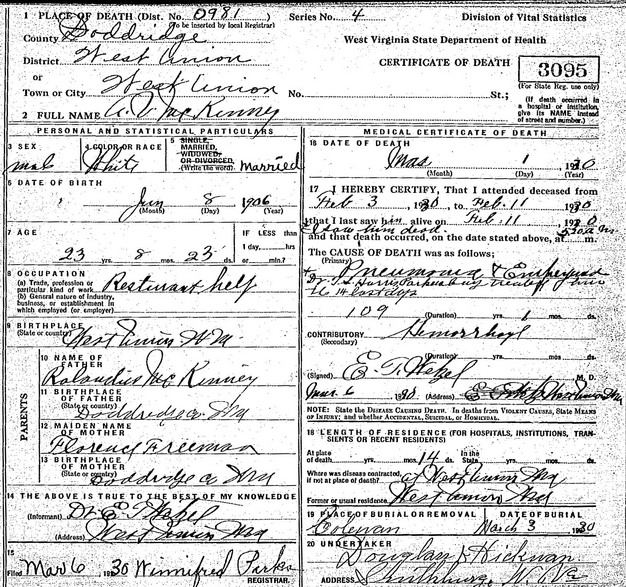 1 PLACE OF DEATH (Dist. No. 0981) Series No. 4 Division of Vital Statistics
(To be inserted by local Registrar)
County Doddridge West Virginia State Department of Health
District West Union CERTIFICATE OF DEATH 3095
or (For State Reg. use only)
Town or City West Union No. St.; (If death occurred in a hospital or institution, give its NAME instead of street and number.)
2 FULL NAME A. V. McKinney
PERSONAL AND STATISTICAL PARTICULARS
3 SEX male 4 COLOR OR RACE White 5 SINGLE, MARRIED, WIDOWED OR DIVORCED. (Write the word) Married
6 DATE OF BIRTH
Jun 8 1906
(Month) (Day) (Year)
7 AGE IF LESS than
1 day, hrs
23 yrs. 8 mos. 23 ds. or min.?
8 OCCUPATION
(a) Trade, profession or particular kind of work Resturant help
(b) General nature of industry, business, or establishment in which employed (or employer)
9 BIRTHPLACE
(State or country) West Union
PARENTS
10 NAME OF FATHER McKinney
11 BIRTHPLACE OF FATHER
(State or country) Doddridge
12 MAIDEN NAME OF MOTHER Florence Freeman
13 BIRTHPLACE OF MOTHER
(State or country) Doddridge
14 THE ABOVE IS TRUE TO THE BEST OF MY KNOWLEDGE
(Informant) Dr E T
(Address) West Union
15
Filed Mar 6 1930 Winnifred Parks
REGISTRAR.
MEDICAL CERTIFICATE OF DEATH
16 DATE OF DEATH
Mar 1 1930
(Month) (Day) (Year)
17 I HEREBY CERTIFY, That I attended deceased from
Feb 3 1930, to Feb. 11 1930
that I last saw him alive on Feb. 11 1930
I saw him dead.
and that death occurred, on the date stated above, at m.
The CAUSE OF DEATH was as follows;
(Primary) Pneumonia & Empyema
14 last days
109 (Duration) yrs. mos. ds.
CONTRIBUTORY
(Secondary)
(Duration) yrs. mos. ds.
(Signed) E. T. M. D.
Mar. 6 1930 (Address)
NOTE: State the DISEASE CAUSING DEATH. In deaths from VIOLENT CAUSES, State MEANS OF INJURY; and whether ACCIDENTAL, SUICIDAL, or HOMICIDAL.
18 LENGTH OF RESIDENCE (FOR HOSPITALS, INSTITUTIONS, TRANSIENTS OR RECENT RESIDENTS)
At place of death yrs. mos. 14 ds. In the State yrs. mos. ds.
Where was disease contracted, if not at place of death? at West Union
Former or usual residence West Union
19 PLACE OF BURIAL OR REMOVAL DATE OF BURIAL
March 3 1930
20 UNDERTAKER
Douglas Hickman
ADDRESS W. Va.